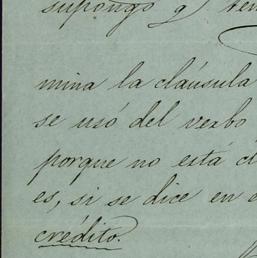 supongo q
mina la cláusula
se usó del verbo
porque no está
es, si se dice en
crédito.